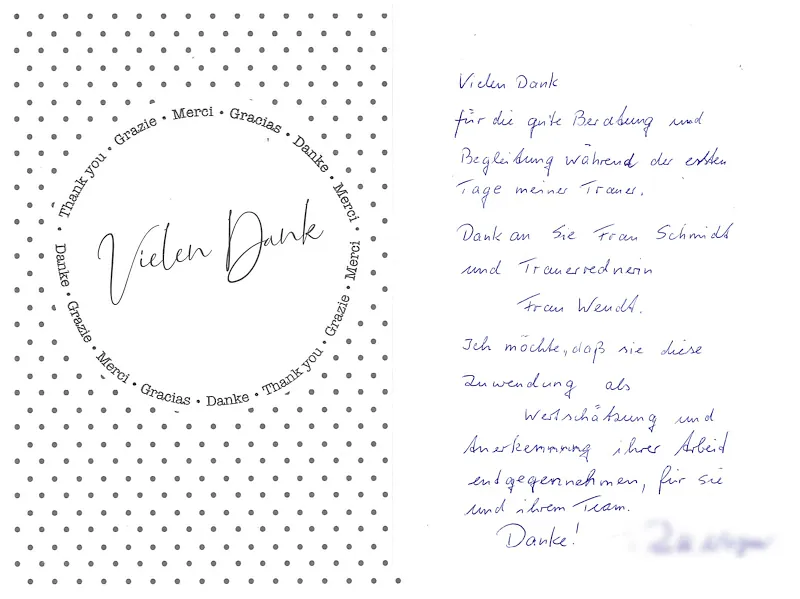 Thank you • Grazie • Merci • Gracias • Danke • Merci •
Danke • Grazie • Merci • Gracias • Danke • Thank you • Grazie • Merci
Vielen Dank
Vielen Dank
für die gute Beratung und
Begleitung während der ersten
Tage meiner Trauer.
Dank an Sie Frau Schmidt
und Trauerrednerin
Frau Wendt.
Ich möchte, daß sie diese
Zuwendung als
Wertschätzung und
Anerkennung ihrer Arbeit
entgegennehmen, für sie
und ihrem Team.
Danke!